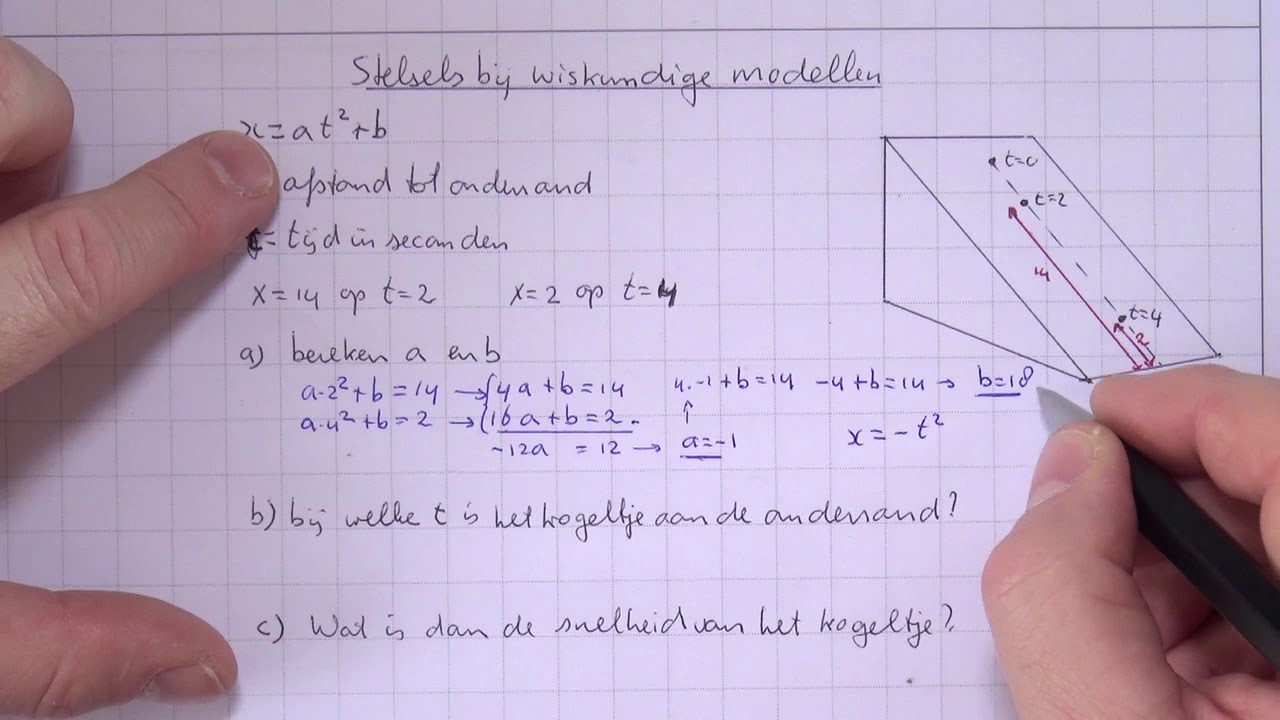 Stelsels bij wiskundige modellen
x=at²+b
afstand tot onderrand
t= tijd in seconden
x=14 op t=2 x=2 op t=4
a) bereken a en b
a·2²+b=14 → 4a+b=14 4·-1+b=14 -4+b=14 → b=18
a·4²+b=2 → 16a+b=2 - ↑
-12a =12 → a=-1 x=-t²
b) bij welke t is het kogeltje aan de onderrand?
c) Wat is dan de snelheid van het kogeltje?
t=0
t=2
14
t=4
2